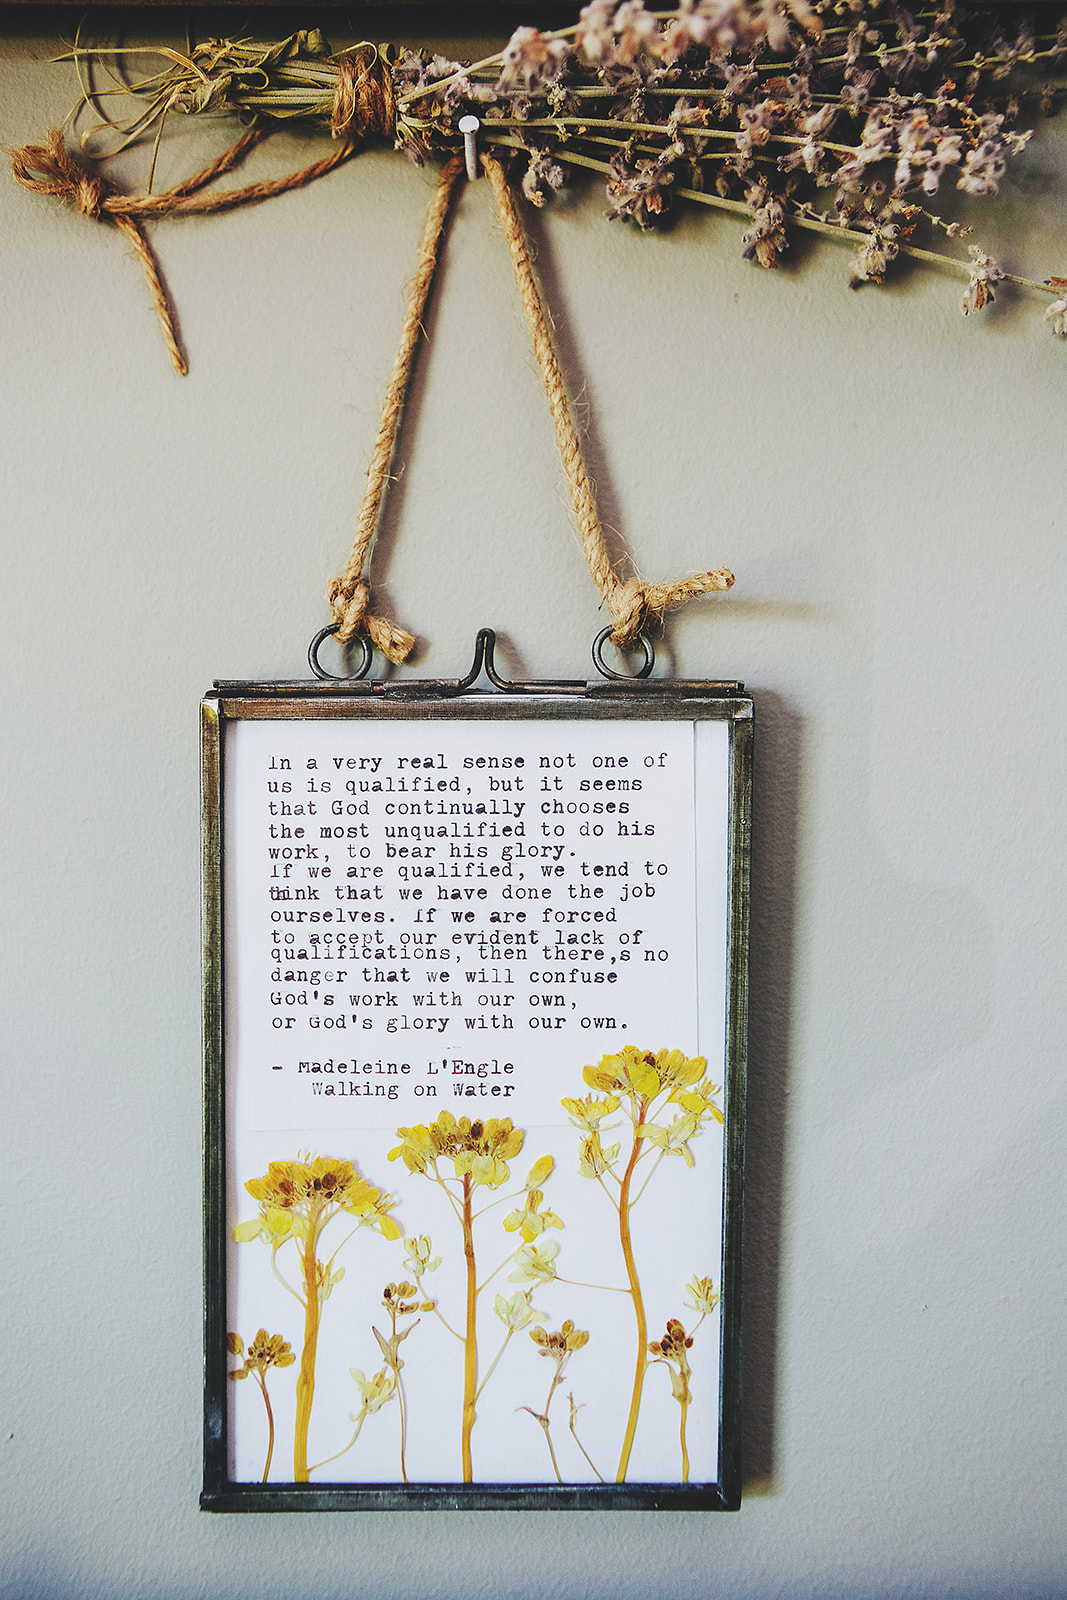 In a very real sense not one of
us is qualified, but it seems
that God continually chooses
the most unqualified to do his
work, to bear his glory.
If we are qualified, we tend to
think that we have done the job
ourselves. If we are forced
to accept our evident lack of
qualifications, then there,s no
danger that we will confuse
God's work with our own,
or God's glory with our own.
- Madeleine L'Engle
Walking on Water